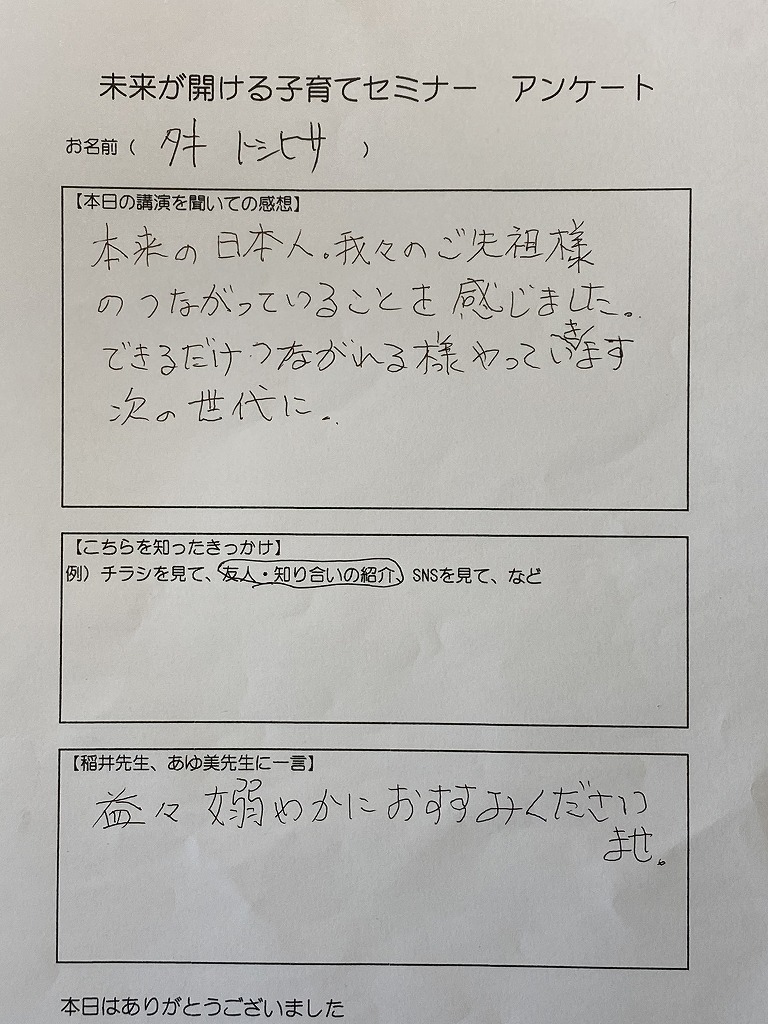 未来が開ける子育てセミナー　アンケート
お名前（ タキ トシヒサ ）
【本日の講演を聞いての感想】
本来の日本人。我々のご先祖様
のつながっていることを感じました。
できるだけつながれる様やっていきます
次の世代に。
【こちらを知ったきっかけ】
例）チラシを見て、友人・知り合いの紹介、SNSを見て、など
【稲井先生、あゆ美先生に一言】
益々嫋やかにおすすみくださいませ。
本日はありがとうございました